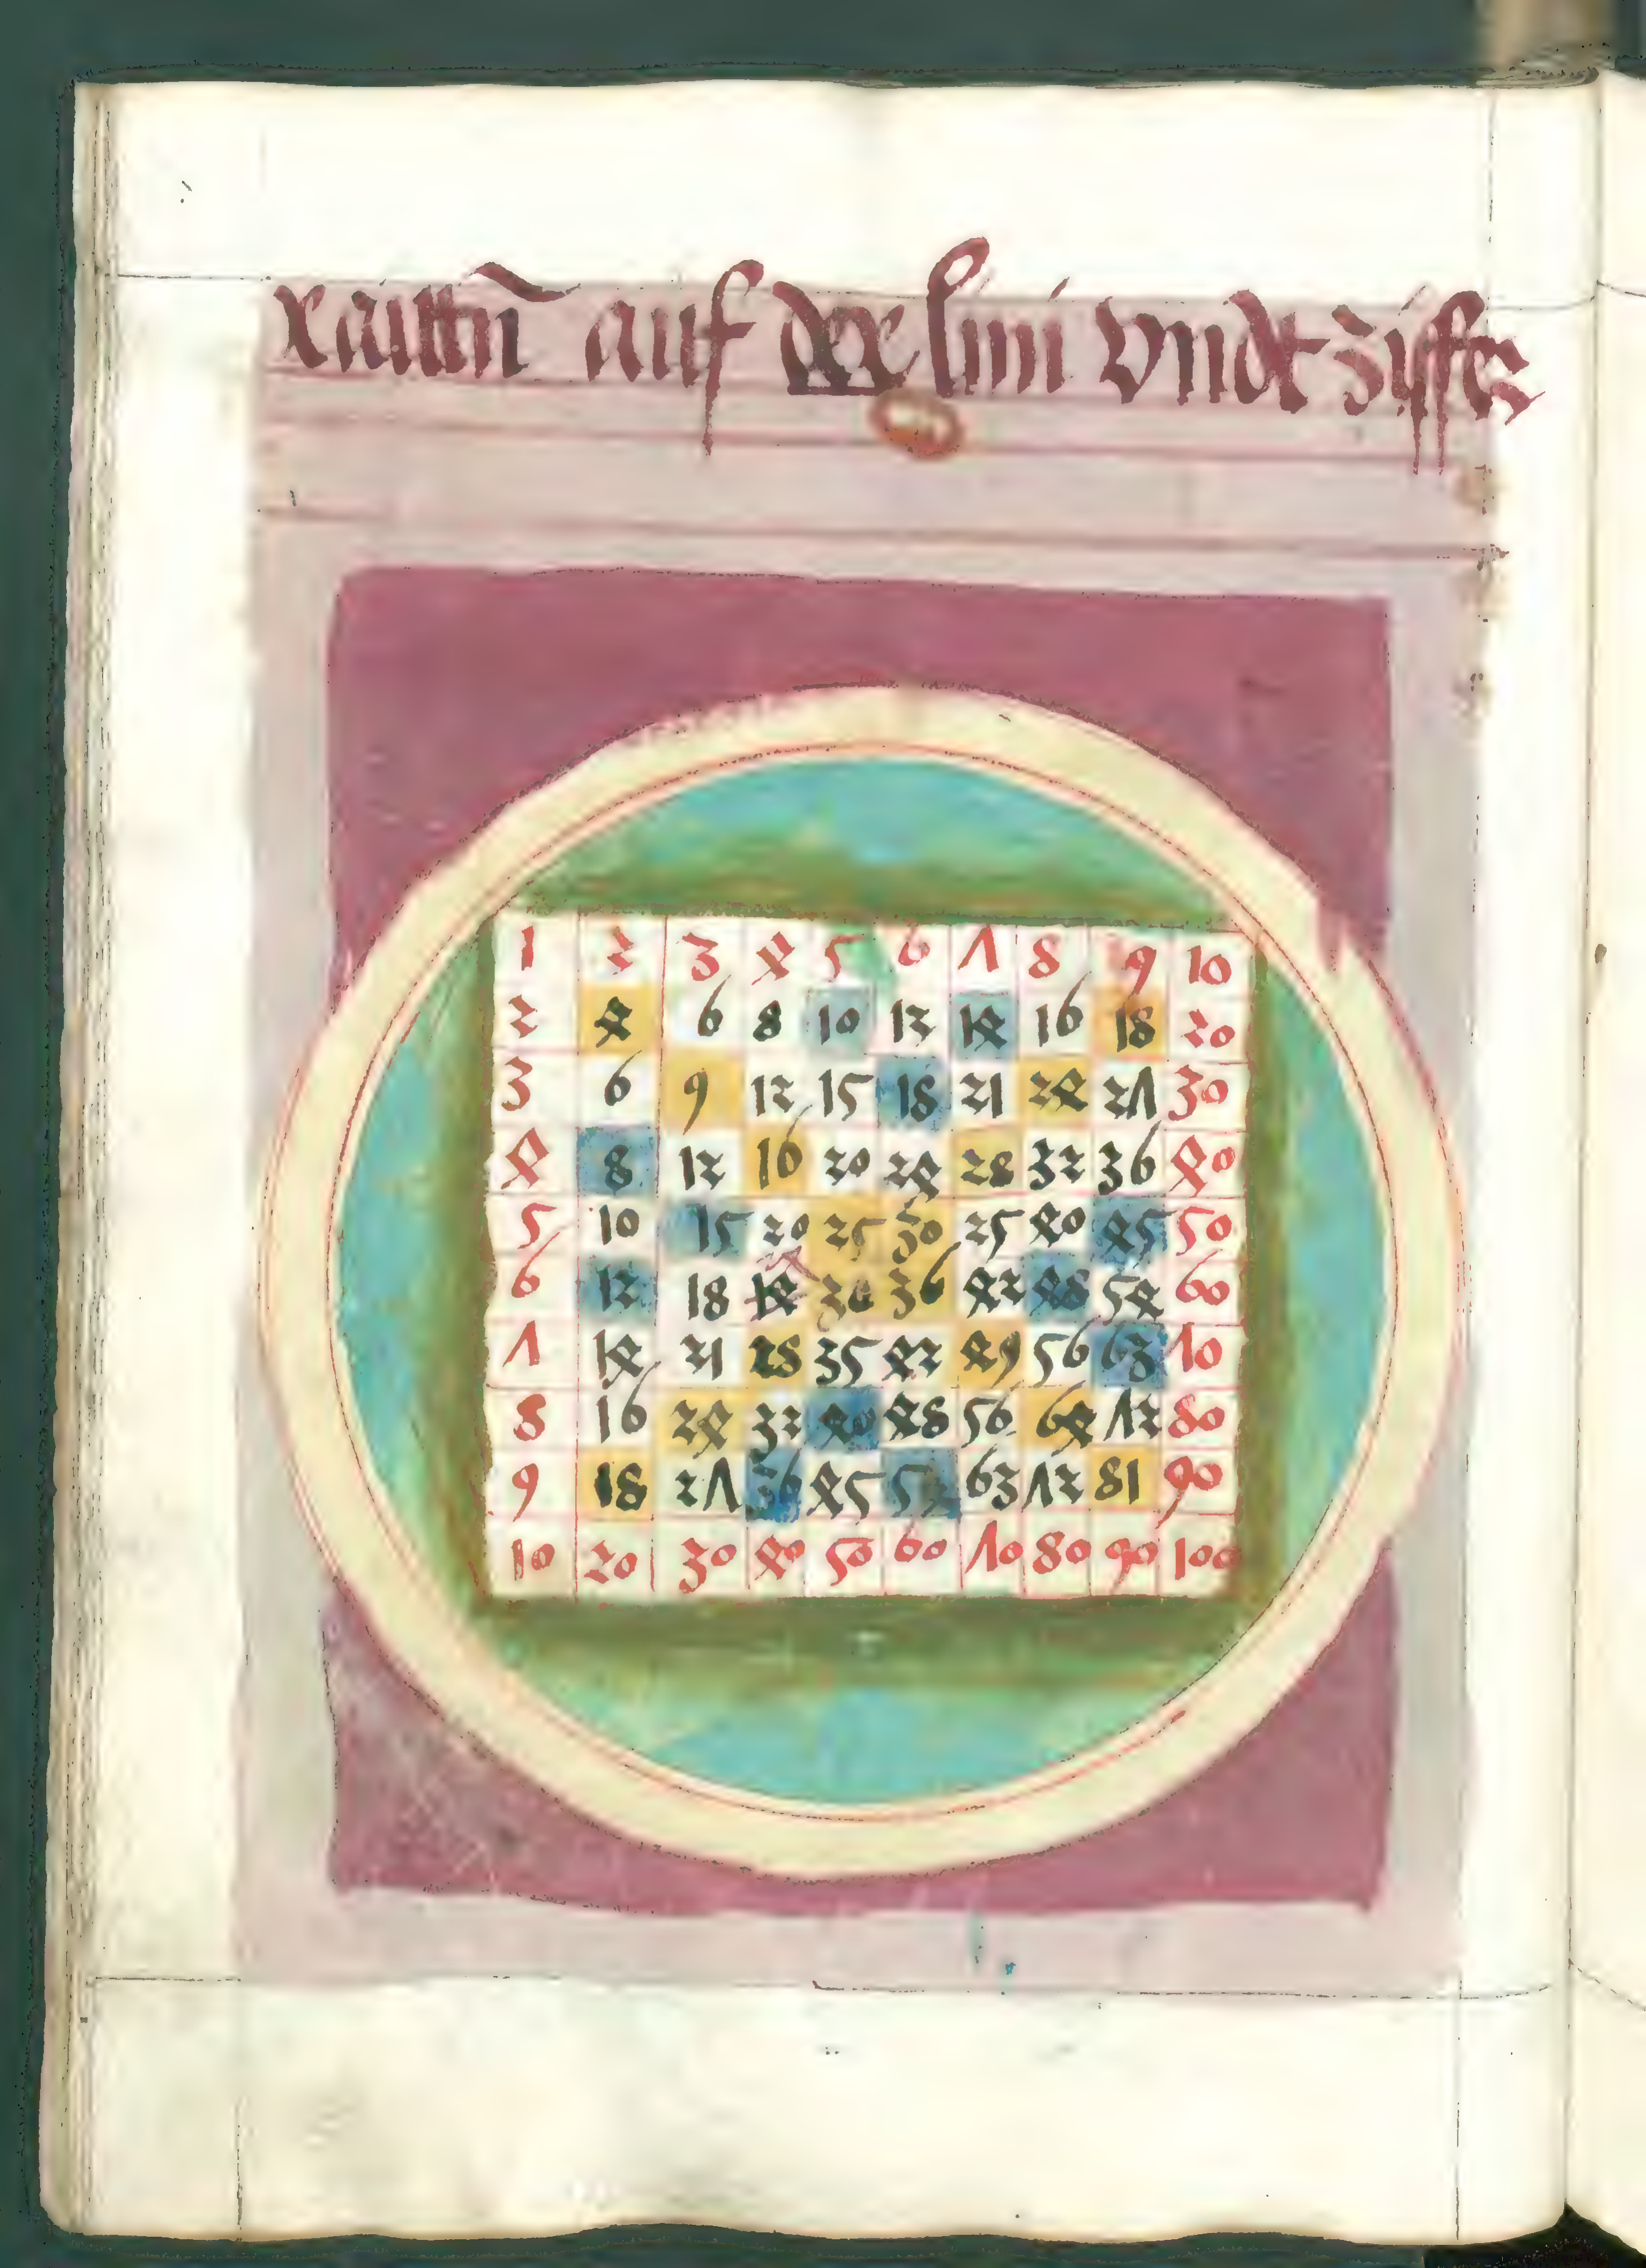 raittn̄ auf der lini vndt ziffer
1 2 3 4 5 6 7 8 9 10
2 4 6 8 10 12 14 16 18 20
3 6 9 12 15 18 21 24 27 30
4 8 12 16 20 24 28 32 36 40
5 10 15 20 25 30 25 40 45 50
6 12 18 14 30 36 42 48 54 60
7 14 21 28 35 42 49 56 63 70
8 16 24 32 40 48 56 64 72 80
9 18 27 36 45 54 63 72 81 90
10 20 30 40 50 60 70 80 90 100